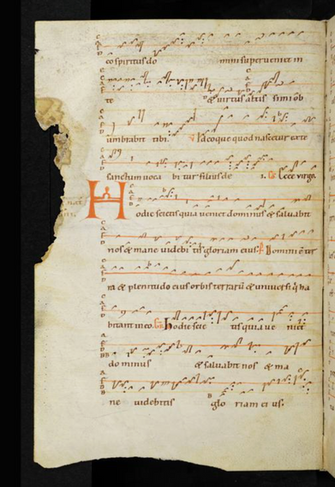 co spiritus do mini superveniet in
te & virtus altis simi ob
umbrabit tibi. Ideoque quod nascetur ex te
sanctum voca bitur filius de i. Ecce virgo.
Hodie scietis quia veniet dominus & salvabit
nos & mane videbitis gloriam eius. Domini est
ra & plenitudo eius orbis terrarū & universi q̇ ha
bitant in eo. Hodie scie tis quia ve niet
dominus & salvabit nos & ma
ne videbitis glo riam ei us.